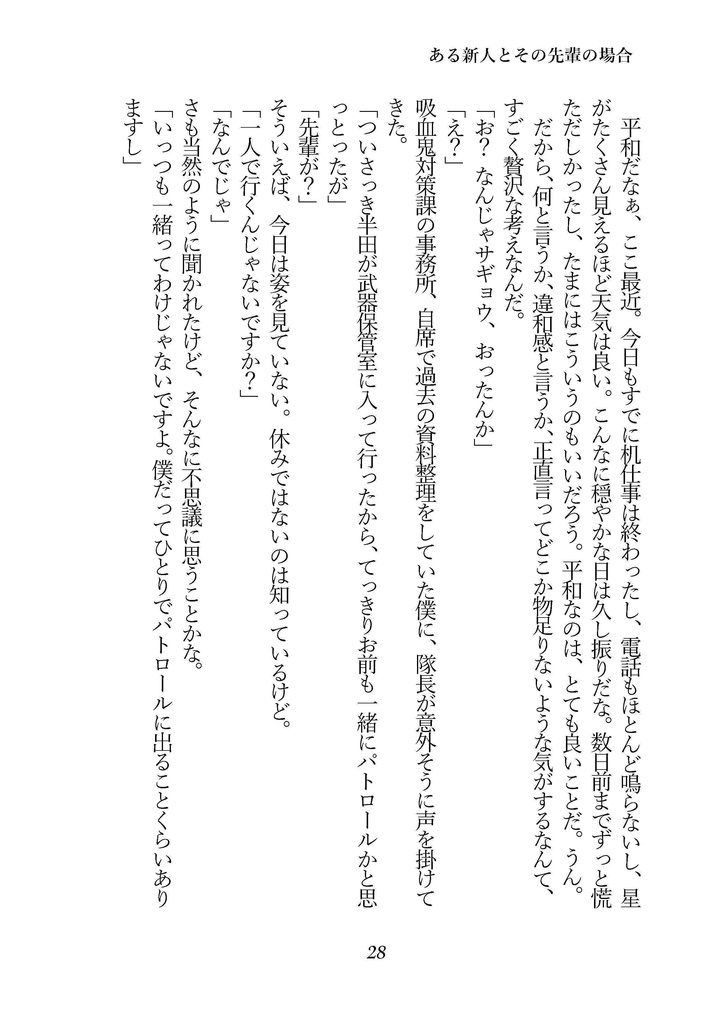 ある新人とその先輩の場合
　平和だなぁ、ここ最近。今日もすでに机仕事は終わったし、電話もほとんど鳴らないし、星
がたくさん見えるほど天気は良い。こんなに穏やかな日は久し振りだな。数日前までずっと慌
ただしかったし、たまにはこういうのもいいだろう。平和なのは、とても良いことだ。うん。
　だから、何と言うか、違和感と言うか、正直言ってどこか物足りないような気がするなんて、
すごく贅沢な考えなんだ。
「お？　なんじゃサギョウ、おったんか」
「え？」
吸血鬼対策課の事務所、自席で過去の資料整理をしていた僕に、隊長が意外そうに声を掛けて
きた。
「ついさっき半田が武器保管室に入って行ったから、てっきりお前も一緒にパトロールかと思
っとったが」
「先輩が？」
そういえば、今日は姿を見ていない。休みではないのは知っているけど。
「一人で行くんじゃないですか？」
「なんでじゃ」
さも当然のように聞かれたけど、そんなに不思議に思うことかな。
「いっつも一緒ってわけじゃないですよ。僕だってひとりでパトロールに出ることくらいあり
ますし」
28